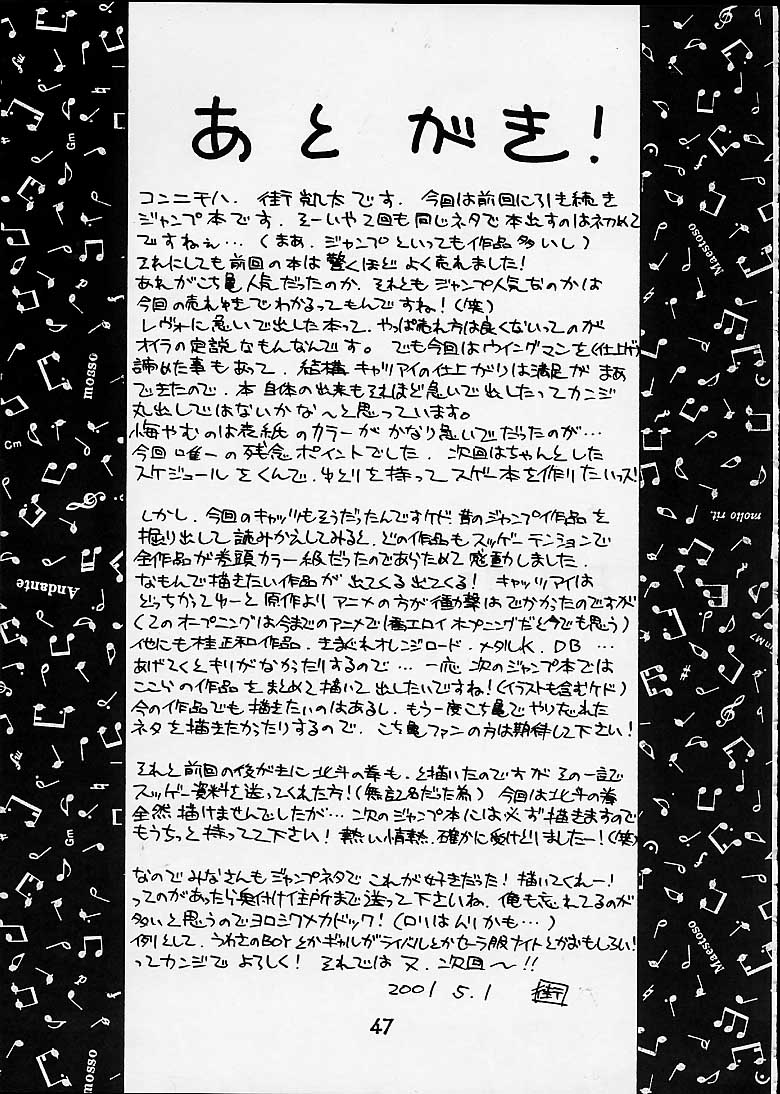 あとがき!
コンニチハ、街凱太です。今回は前回に引き続き
ジャンプ本です。そーいや2回も同じネタで本出すのは初めて
ですねぇ…(まあ、ジャンプといっても作品多いし)
それにしても前回の本は驚くほどよく売れました!
あれがこち亀人気だったのか、それともジャンプ人気なのかは
今回の売れゆきでわかるってもんですね!(笑)
レヴォに急いで出した本って、やっぱ売れ方は良くないってのが
オイラの定説なもんなんです。でも今回はウイングマンを(仕上げ)
諦めた事もあって、結構キャッツアイの仕上がりは満足が まあ
できたので、本自体の出来もそれほど急いで出したってカンジ
丸出しではないかな〜と思っています。
悔やむのは表紙のカラーがかなり急いでだったのが…
今回唯一の残念ポイントでした、次回はちゃんとした
スケジュールをくんで、ゆとりを持ってスゲー本を作りたいっス!
しかし、今回のキャッツもそうだったんですケド昔のジャンプ作品を
掘り出して読みかえしてみると、どの作品もスッゲーテンションで
全作品が巻頭カラー級だったのであらためて感動しました、
なもんで描きたい作品が出てくる出てくる!キャッツアイは
どっちかってゆーと原作よりアニメの方が衝撃はでかかたのですが
(2のオープニングは今までのアニメで1番エロイオープニングだと今でも思う)
他にも桂正和作品、きまぐれオレンジロード、メタルK、DB…
あげてくとキリがなかったりするので…一応次のジャンプ本では
ここらの作品をまとめて描いて出したいですね!(イラストも含むケド)
今の作品でも描きたいのはあるし、もう一度こち亀でやりたおれた
ネタを描きたかったりするので、こち亀ファンの方は期待して下さい!
それと前回の後がきに北斗の拳も、と描いたのですがその一言で
スッゲー資料を送ってくれた方!(無記名だった為)今回は北斗の拳
全然描けませんでしたが…次のジャンプ本には必ず描きますので
もうちっと持ってて下さい!熱い情熱、確かに受けとりましたー!(笑)
なのでみなさんもジャンプネタでこれが好きだった!描いてくれー!
ってのがあったら奥付け住所まで送って下さいね、俺も忘れてるのが
多いと思うのでヨロシクメカドック!(ロリはムリかも…)
例として、うわさのBOYとかギャルがライバルとかセーラー服ナイトとかおもしろい!
ってカンジでよろしく!それでは又、次回〜!!
2001 5.1 街
47
mosso
Gm
Cm
Andante
Gm
mosso
Maestoso
molto rit.
Maestoso